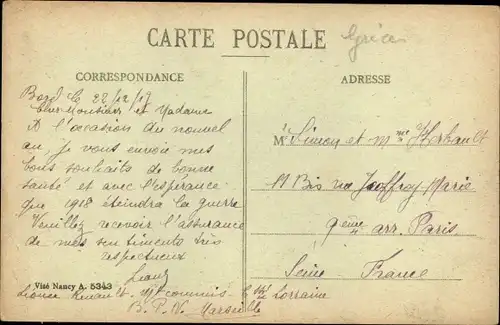 Grèce
CARTE POSTALE
CORRESPONDANCE
ADRESSE
Bord le 22/12/17
Cher Monsieur et Madame
A l'occasion du nouvel
an, je vous envoie mes
bons souhaits de bonne
santé et avec l'espérance
que 1918 éteindra la guerre
Veuillez recevoir l'assurance
de mes sentiments très
respectueux
Mr Simon et Mme
11 Bis rue Jouffroy Marie
9eme arr. Paris
Seine France
Visé Nancy A. 5343
Renault commis
Lorraine
B. P. N. Marseille